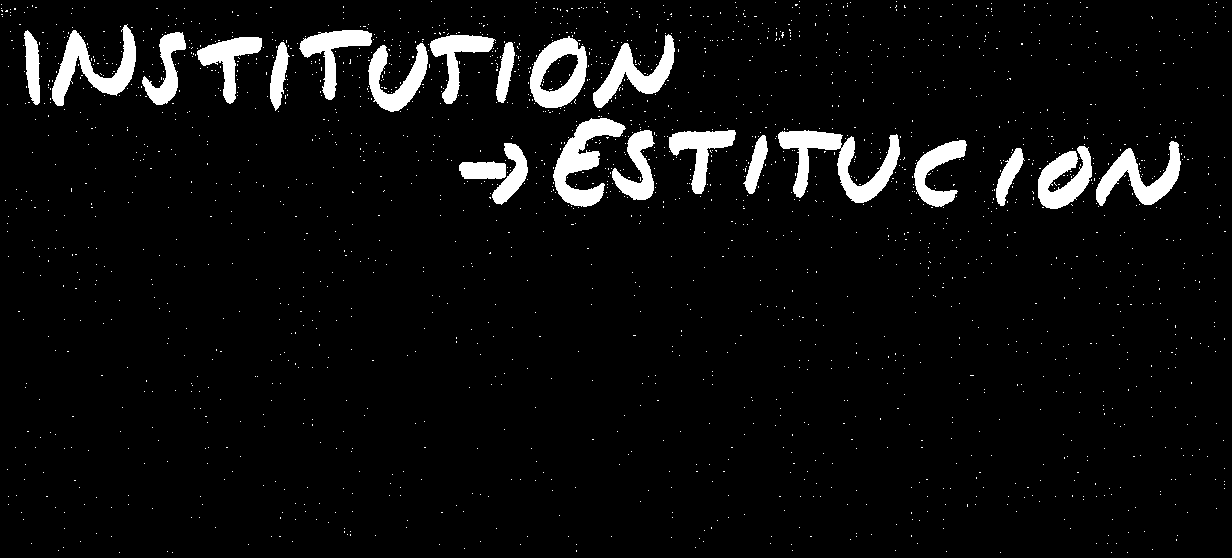 INSTITUTION
→ ESTITUCION